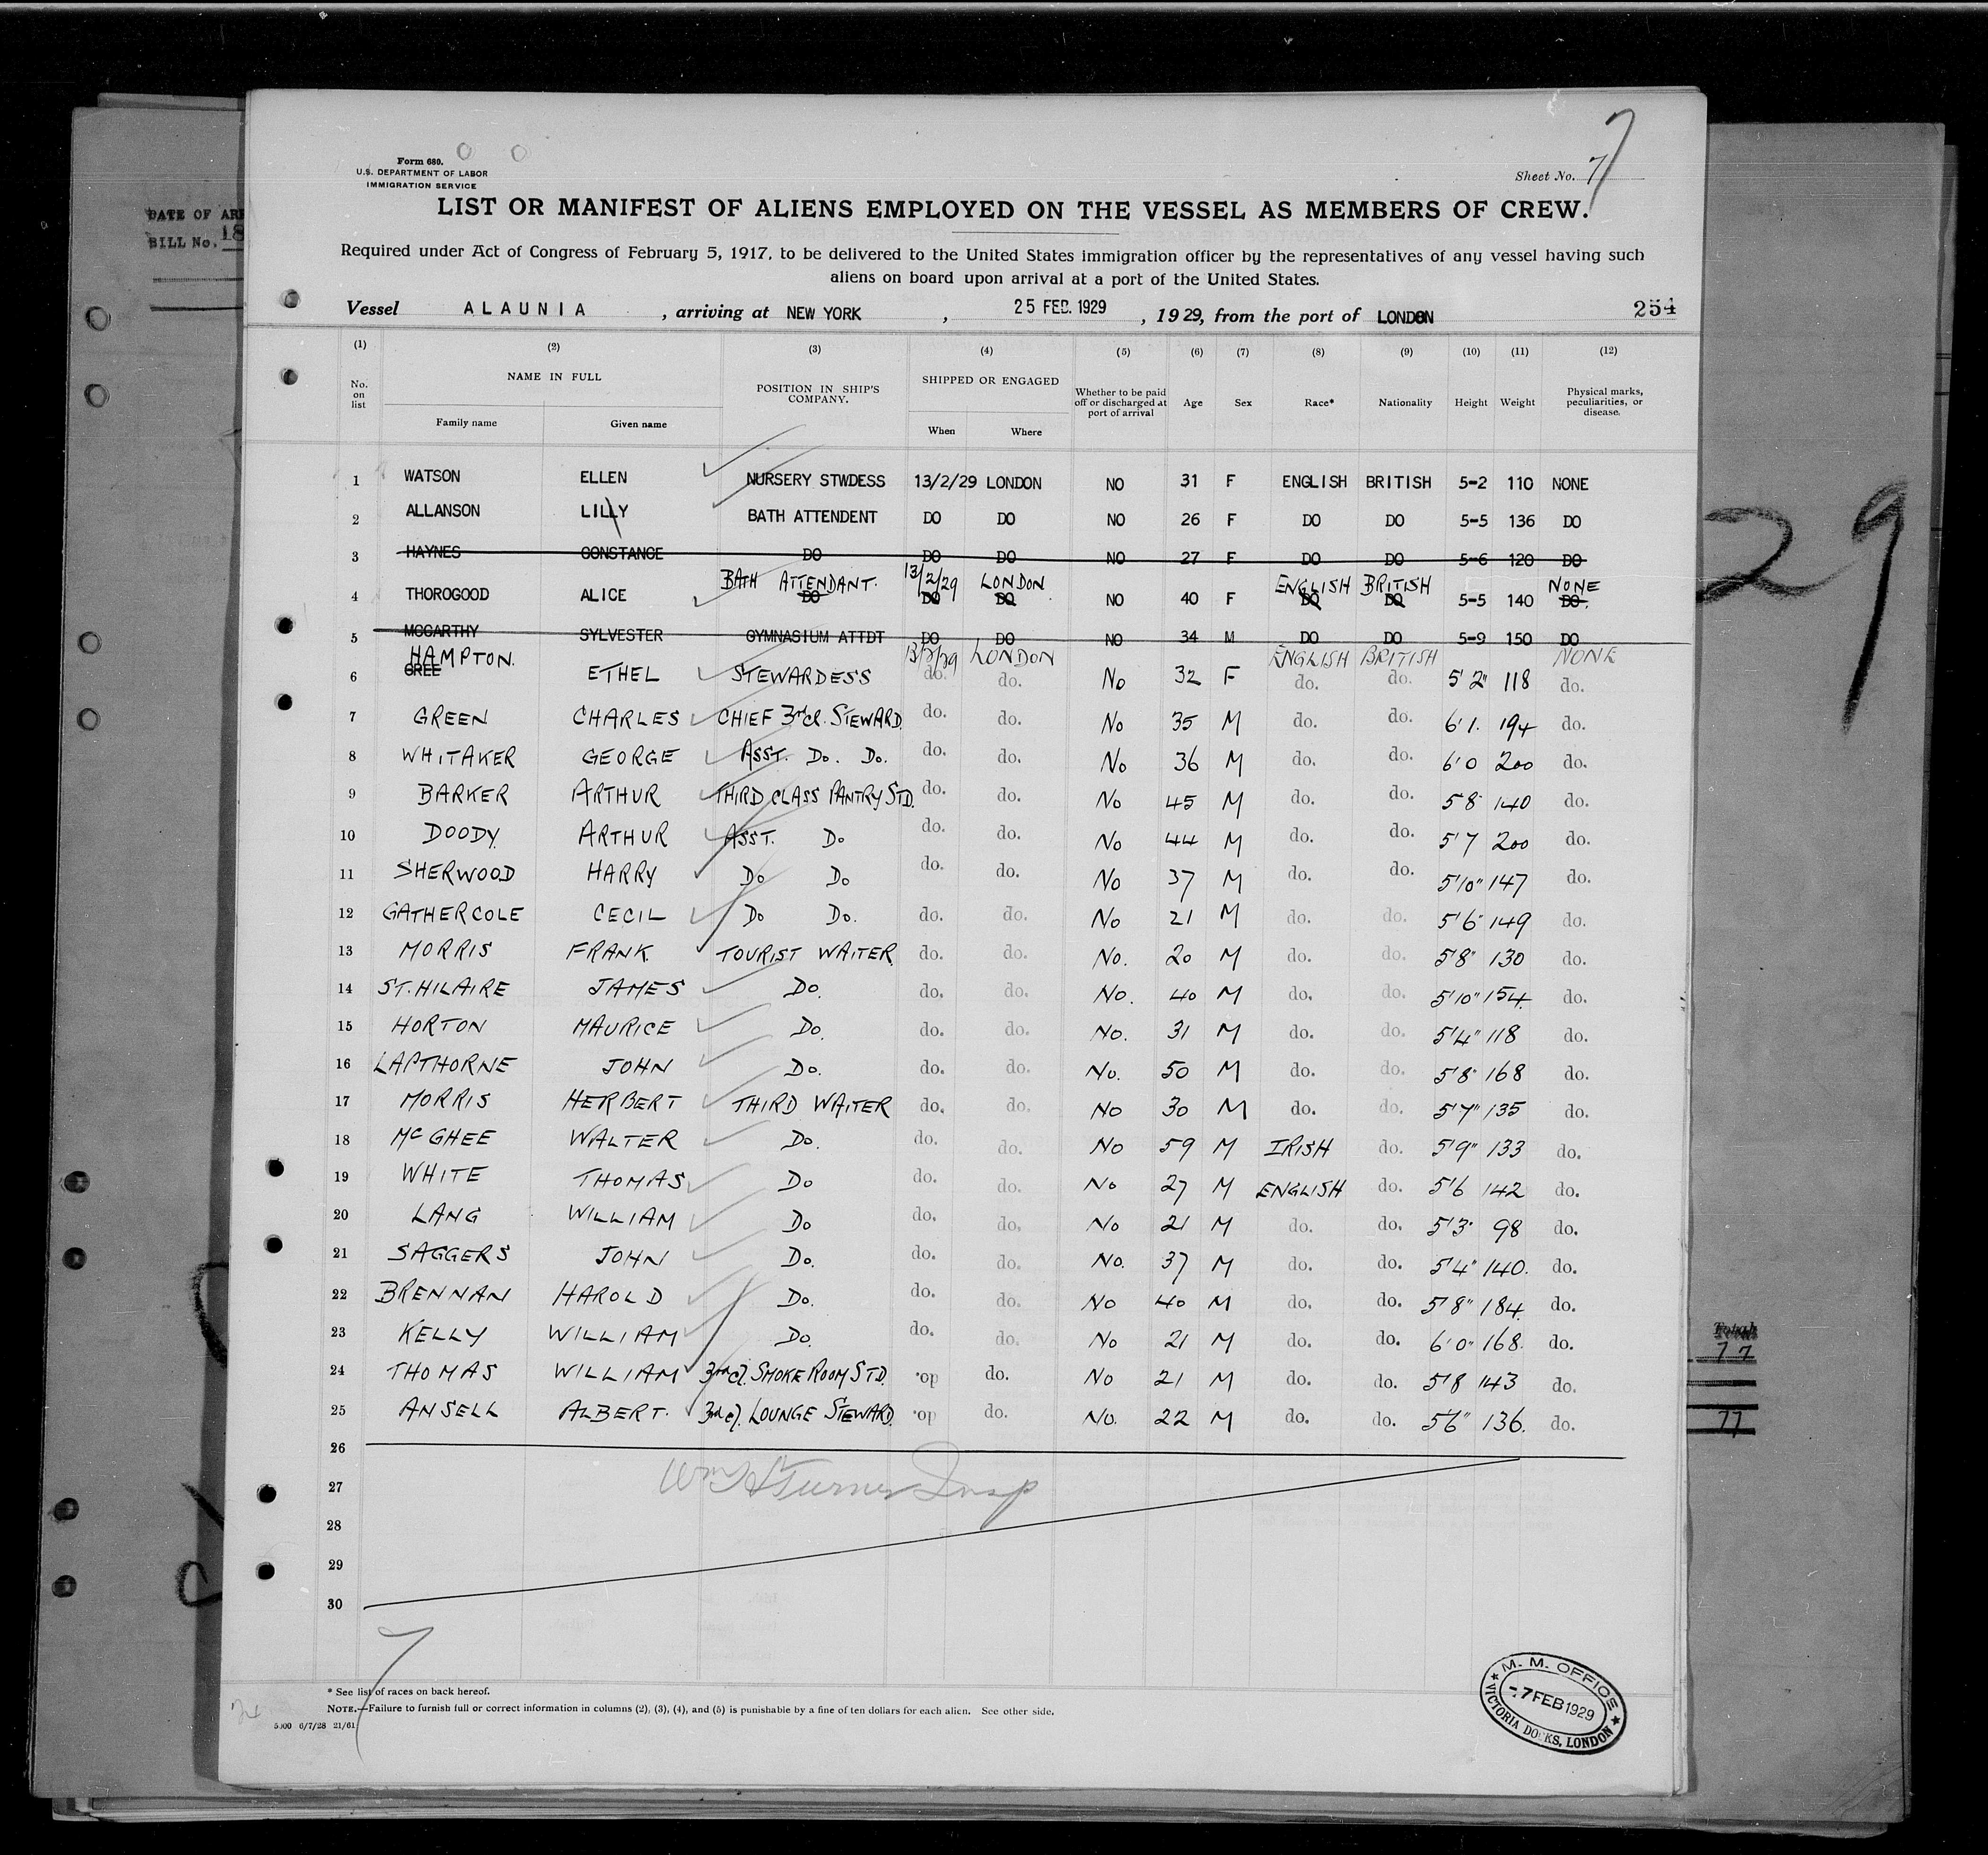 Form 680.
U.S. DEPARTMENT OF LABOR
IMMIGRATION SERVICE
Sheet No. 7
7
LIST OR MANIFEST OF ALIENS EMPLOYED ON THE VESSEL AS MEMBERS OF CREW.
Required under Act of Congress of February 5, 1917, to be delivered to the United States immigration officer by the representatives of any vessel having such
aliens on board upon arrival at a port of the United States.
Vessel ALAUNIA, arriving at NEW YORK, 25 FEB. 1929, 1929, from the port of LONDON 254
(1) (2) (3) (4) (5) (6) (7) (8) (9) (10) (11) (12)
No. on list NAME IN FULL Family name Given name POSITION IN SHIP'S COMPANY. SHIPPED OR ENGAGED When Where Whether to be paid off or discharged at port of arrival Age Sex Race* Nationality Height Weight Physical marks, peculiarities, or disease.
1 WATSON ELLEN NURSERY STWDESS 13/2/29 LONDON NO 31 F ENGLISH BRITISH 5-2 110 NONE
2 ALLANSON LILLY BATH ATTENDENT DO DO NO 26 F DO DO 5-5 136 DO
3 HAYNES CONSTANCE DO DO DO NO 27 F DO DO 5-6 120 DO
BATH ATTENDANT. 13/2/29 LONDON ENGLISH BRITISH NONE
4 THOROGOOD ALICE DO DO DO NO 40 F DO DO 5-5 140 DO.
5 MCCARTHY SYLVESTER GYMNASIUM ATTDT DO DO NO 34 M DO DO 5-9 150 DO
HAMPTON. 13/2/29 LONDON ENGLISH BRITISH NONE
6 GREE ETHEL STEWARDESS do. do. No 32 F do. do. 5'2" 118 do.
7 GREEN CHARLES CHIEF 3rd Cl. STEWARD. do. do. No 35 M do. do. 6'1. 194 do.
8 WHITAKER GEORGE ASST. Do. Do. do. do. No 36 M do. do. 6'0 200 do.
9 BARKER ARTHUR THIRD CLASS PANTRY STD. do. do. No 45 M do. do. 5'8" 140 do.
10 DOODY ARTHUR ASST. Do do. do. No 44 M do. do. 5'7 200 do.
11 SHERWOOD HARRY Do Do do. do. No 37 M do. do. 5'10" 147 do.
12 GATHERCOLE CECIL Do Do. do. do. No 21 M do. do. 5'6" 149 do.
13 MORRIS FRANK TOURIST WAITER. do. do. No. 20 M do. do. 5'8" 130 do.
14 ST. HILAIRE JAMES Do. do. do. No. 40 M do. do. 5'10" 154. do.
15 HORTON MAURICE Do. do. do. No. 31 M do. do. 5'4" 118 do.
16 LAPTHORNE JOHN Do. do. do. No. 50 M do. do. 5'8" 168 do.
17 MORRIS HERBERT THIRD WAITER do. do. No 30 M do. do. 5'7" 135 do.
18 McGHEE WALTER Do. do. do. No 59 M IRISH do. 5'9" 133 do.
19 WHITE THOMAS Do do. do. No 27 M ENGLISH do. 5'6 142 do.
20 LANG WILLIAM Do do. do. No 21 M do. do. 5'3" 98 do.
21 SAGGERS JOHN Do. do. do. No. 37 M do. do. 5'4" 140. do.
22 BRENNAN HAROLD Do. do. do. No 40 M do. do. 5'8" 184. do.
23 KELLY WILLIAM Do. do. do. No 21 M do. do. 6'0" 168. do.
24 THOMAS WILLIAM 3rd Cl. SMOKE ROOM STD. do. do. No 21 M do. do. 5'8 143 do.
25 ANSELL ALBERT. 3rd Cl. LOUNGE STEWARD. do. do. No. 22 M do. do. 5'6" 136. do.
26
27 Turner Insp
28
29
30
7
* See list of races on back hereof.
NOTE.—Failure to furnish full or correct information in columns (2), (3), (4), and (5) is punishable by a fine of ten dollars for each alien. See other side.
5000 6/7/28 21/61
M. M. OFFICE
-7 FEB 1929
VICTORIA DOCKS, LONDON
DATE OF ARR
BILL No. 18
29
Total
77
77